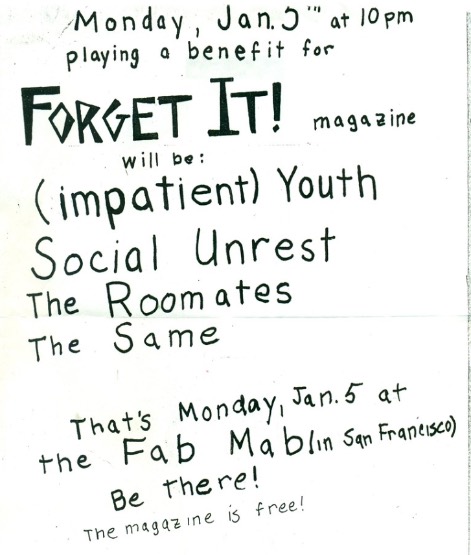 Monday, Jan. 5th at 10pm
playing a benefit for
FORGET IT! magazine
will be:
(impatient) Youth
Social Unrest
The Roomates
The Same
That's Monday, Jan. 5 at
the Fab Mab (in San Francisco)
Be there!
The magazine is free!